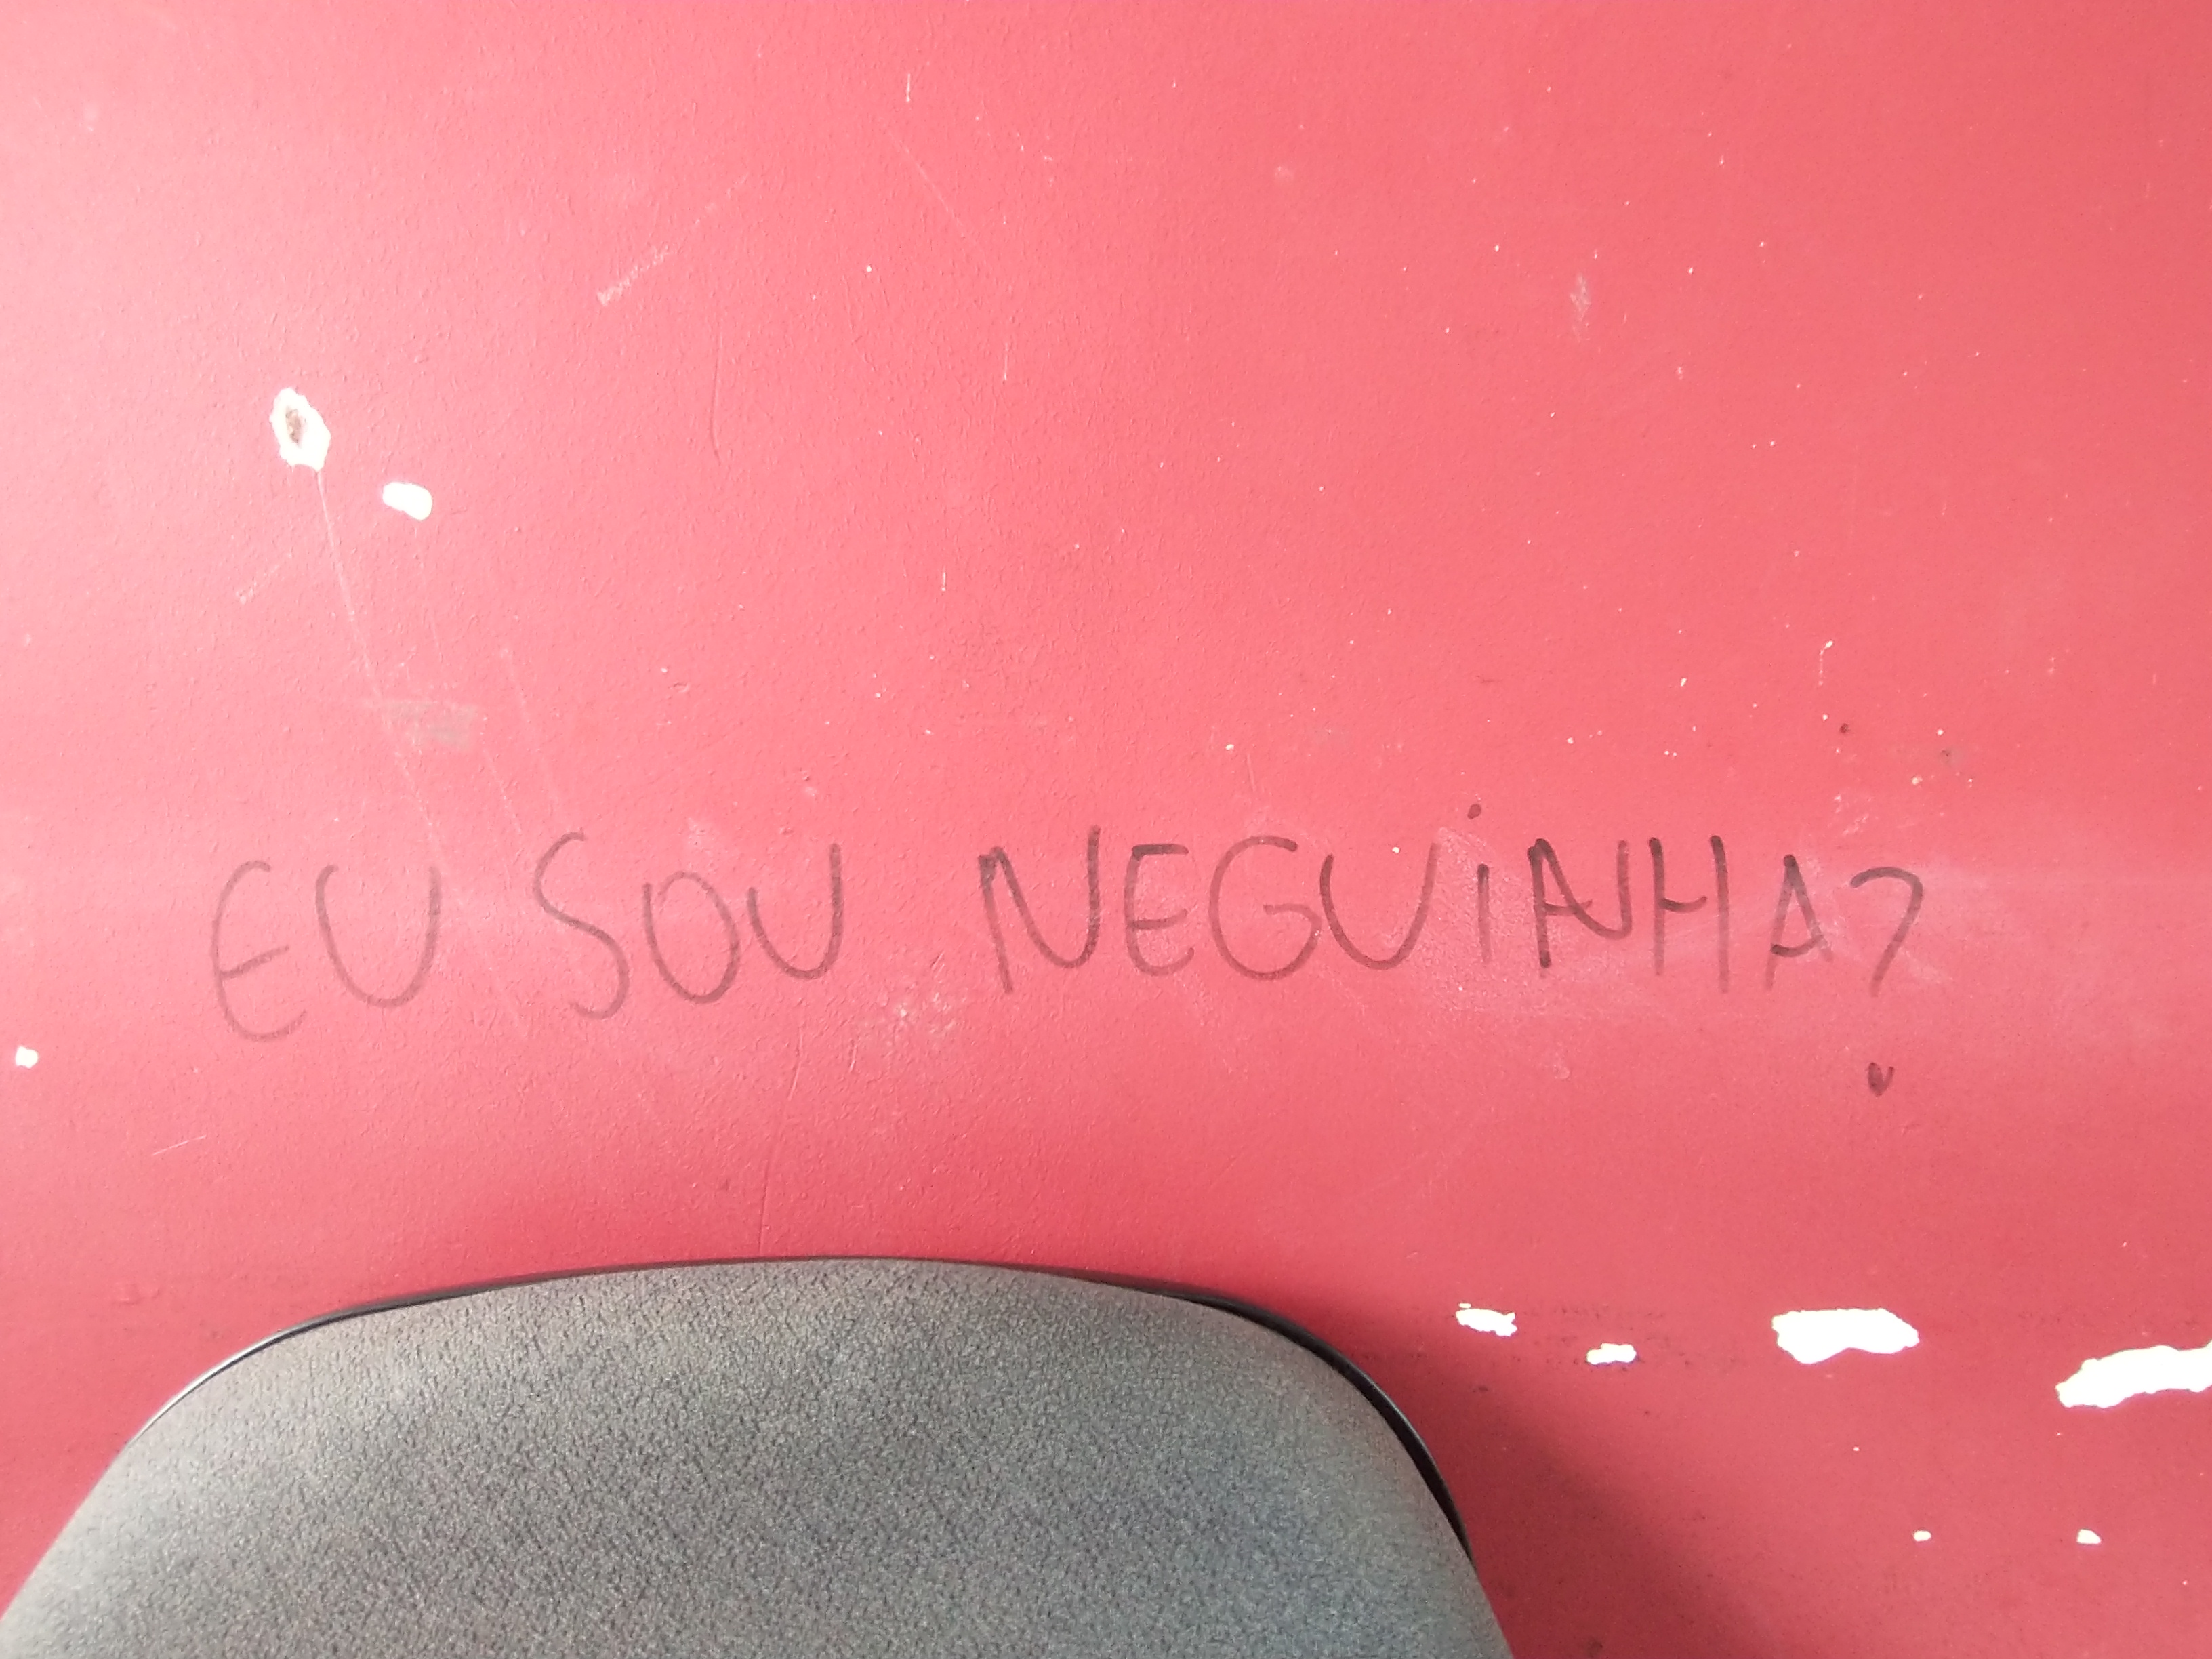 EU SOU NEGUINHA?